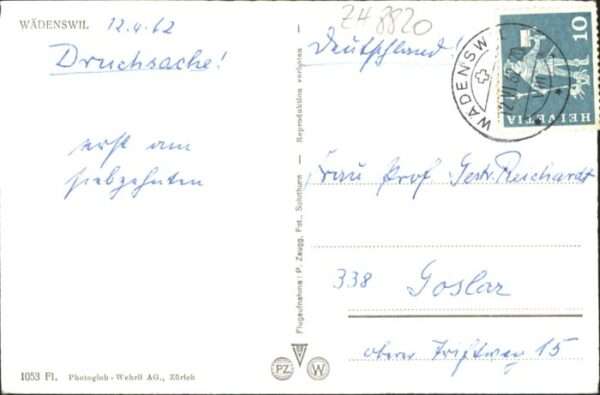 WÄDENSWIL 12.4.62
Z4 8820
Druchsache!
Deutschland!
erst am
siebzehnten
Frau Prof. Gertr. Reichardt
338 Goslar
oberer Triftweg 15
WÄDENSWIL
10
HELVETIA
Flugaufnahme: P. Zaugg, Fot., Solothurn — Reproduktion verboten —
PZ W
1053 Fl. Photoglob-Wehrli AG., Zürich